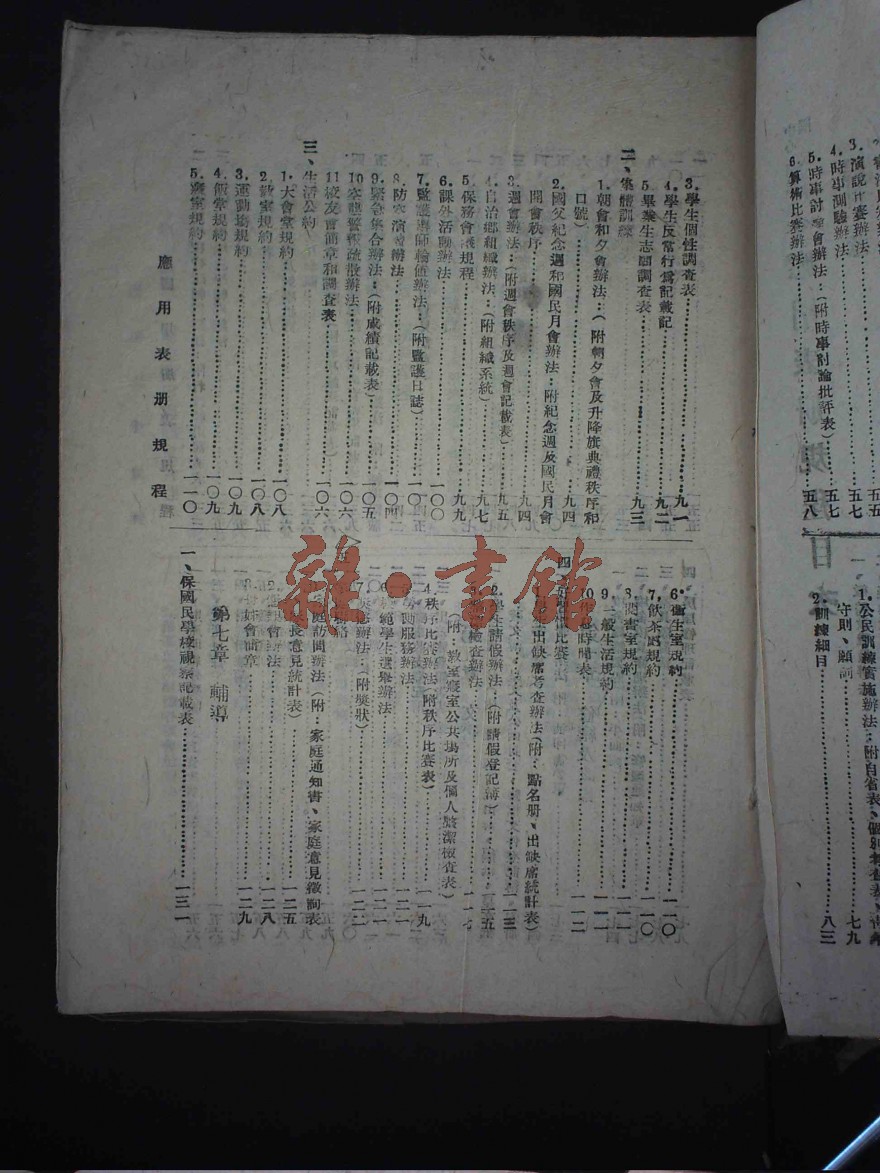 3. 學生個性調查表 九一
4. 學生反常行爲記載記 九二
5. 畢業生志願調查表 九三
二、集體訓練
1. 朝會和夕會辦法：（附朝夕會及升降旗典禮秩序和
口號） 九四
2. 國父紀念週和國民月會辦法：附紀念週及國民月會
開會秩序 九四
3. 週會辦法：（附週會秩序及週會記載表） 九五
4. 自治鄉組織辦法：（附組織系統） 九七
5. 保務會議規程 九九
6. 課外活動辦法 一〇〇
7. 監護導師輪值辦法：（附監護日誌）
8. 防空演習辦法 一〇四
9. 緊急集合辦法：（附成績記載表） 一〇五
10 空襲警報疏散辦法 一〇六
11 校友會簡章和調查表 一〇六
三、生活公約
1. 大會堂規約 一〇八
2. 教室規約 一〇八
3. 運動場規約 一〇九
4. 飯堂規約 一〇九
5. 寢室規約 一一〇
應用表册規程
6. 衞生室規約 一一〇
7. 飲茶處規約 一一〇
8. 閱書室規約 一一一
9. 一般生活規約 一一一
10 時間表 一一二
四
出缺席考查辦法（附：點名册、出缺席統計表）
一一三
2. 學生請假辦法：（附請假登記簿） 一一五
檢查辦法 一一七
（附：教室寢室公共場所及個人整潔檢查表）
4. 秩序比賽辦法（附秩序比賽表） 一一九
勞動服務辦法 一二一
模範學生選舉辦法 一二一
獎懲辦法：（附獎狀） 一二二
聯絡
家庭訪問辦法（附：家庭通知書、家庭意見徵詢表
家長意見統計表） 一二五
辦法 一二八
會簡章 一二九
第七章 輔導
一、保國民學校視察記載表 一三一
3. 演說比賽辦法
4. 時事測驗辦法 五七
5. 時事討論會辦法：（附時事討論批評表） 五七
6. 算術比賽辦法 五八
1. 公民訓練實施辦法：附自省表、個別考查表、
守則、願詞 七九
2. 訓練細目 八三
雜·書館